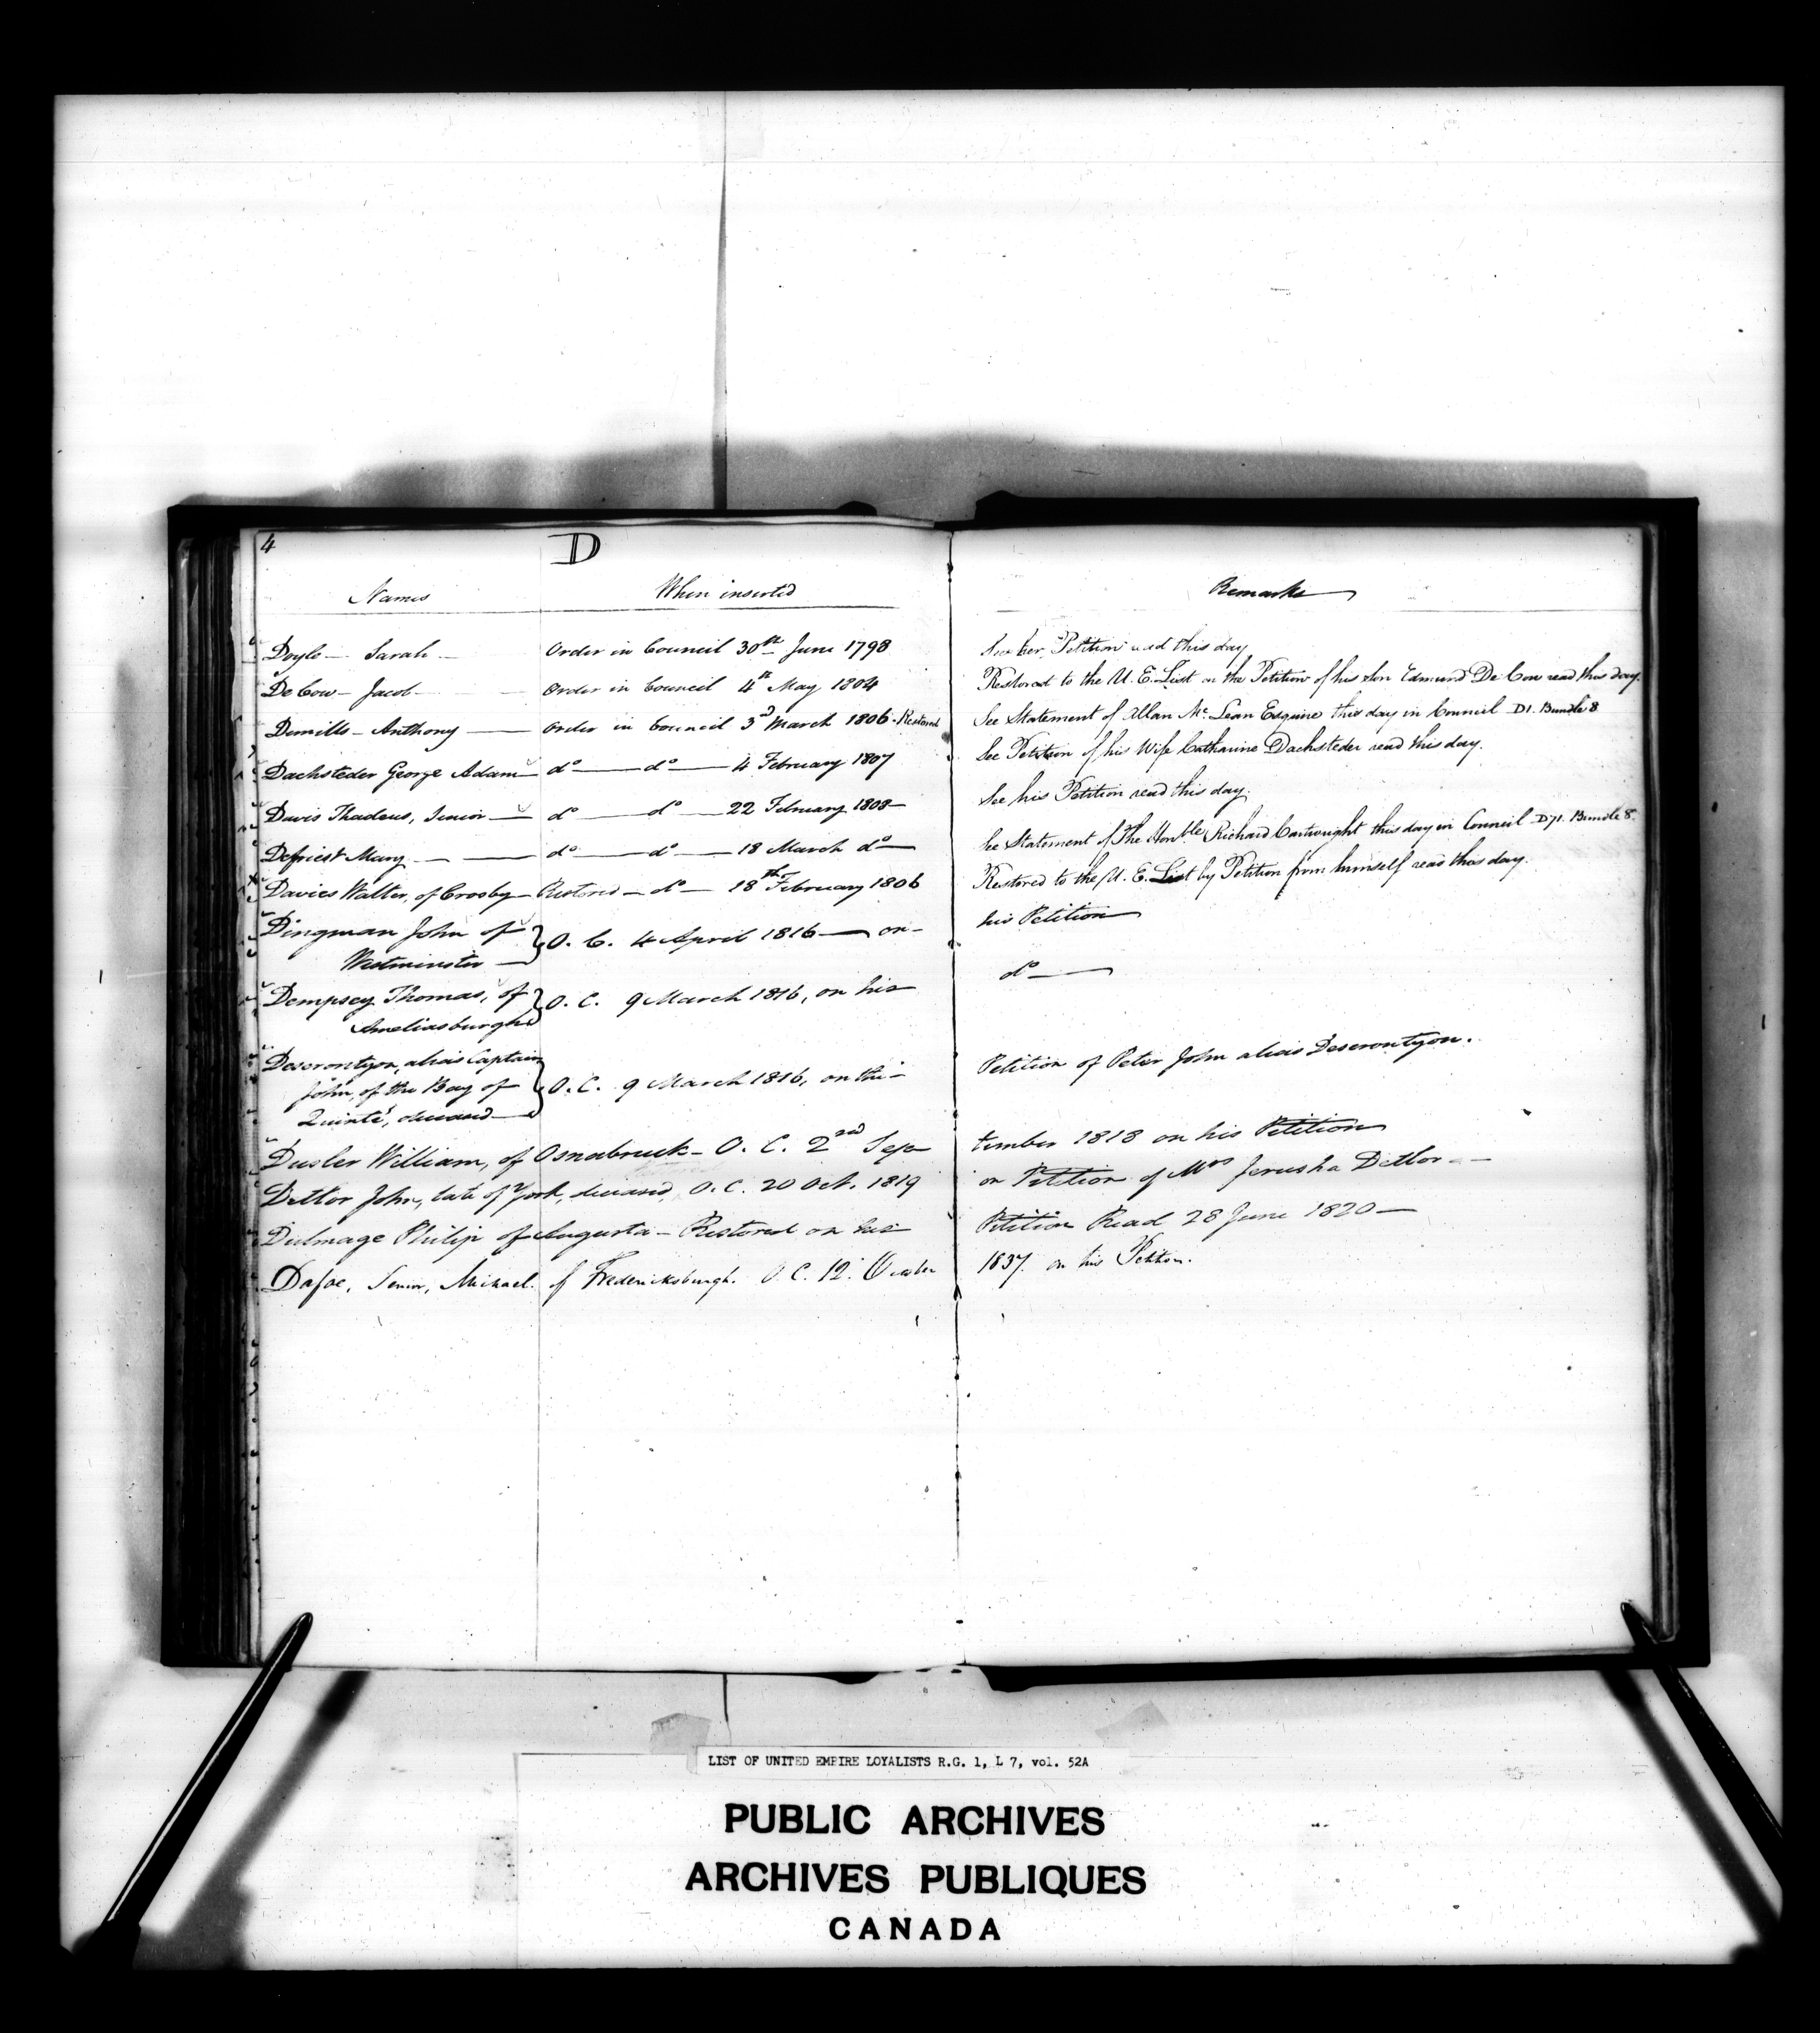 4
D
Names When inserted Remarks
Doyle — Sarah — Order in Council 30th June 1798 See her Petition read this day
DeCow — Jacob — Order in Council 4th May 1804 Restored to the U. E. List on the Petition of his son Edmund De Cow read this day.
Demills — Anthony — Order in Council 3d March 1806 - Restored See Statement of Allan Mc Lean Esquire this day in Council D1. Bundle 8
Dachsteder George Adam — do — do — 4 February 1807 See Petition of his Wife Catharine Dachsteder read this day.
Davis Thadeus, Senior — do — do — 22 February 1808 — See his Petition read this day.
Defriest Mary — — do — do — 18 March do — See Statement of The Honble Richard Cartwright this day in Council D71. Bundle 8.
Davies Walter, of Crosby — Restored — do — 18th February 1806 Restored to the U. E. List by Petition from himself read this day.
Dingman John of } O. C. 4 April 1816 — on — his Petition
Westminster —
Dempsey Thomas, of } O. C. 9 March 1816, on his do —
Ameliasburgh
Deserontyon, alias Captain
John, of the Bay of } O. C. 9 March 1816, on the — Petition of Peter John alias Deserontyon.
Quinté, deceased —
Dusler William, of Osnabruck — O. C. 2nd Sep- tember 1818 on his Petition
Detlor John, late of York, deceased, O. C. 20 Oct. 1819 on Petition of Mrs Jerusha Detlor —
Dulmage Philip of Augusta — Restored on his Petition Read 28 June 1820 —
Dafoe, Senior, Michael. of Fredericksburgh. O. C. 12. October 1837. on his Petition.
LIST OF UNITED EMPIRE LOYALISTS R.G. 1, L 7, vol. 52A
PUBLIC ARCHIVES
ARCHIVES PUBLIQUES
CANADA